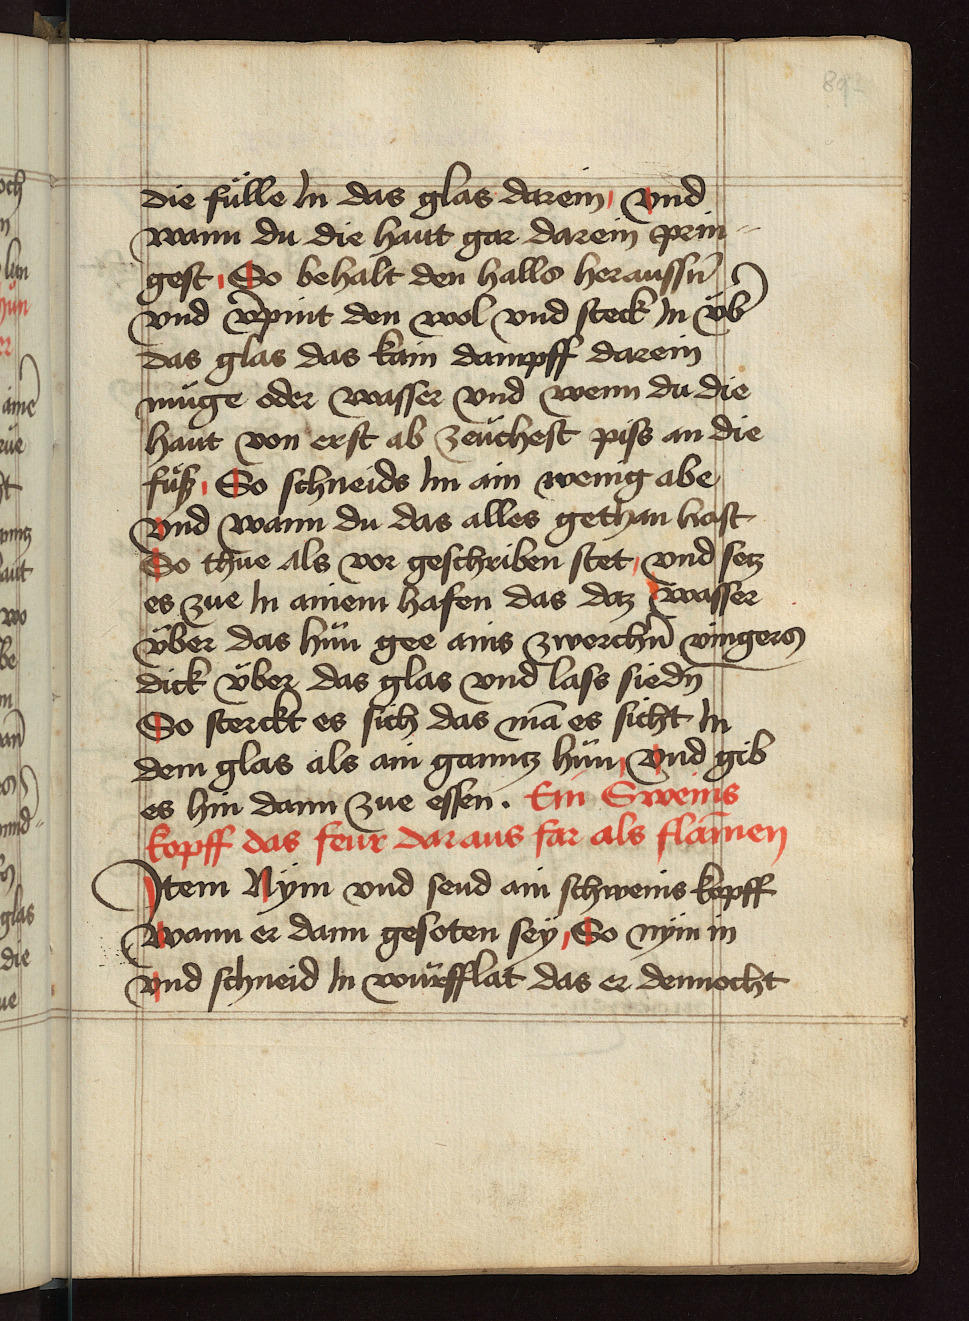 die fülle In das glas darein, vnd
wann du die haut gar darein prin=
gest, So behalt den halls heraussn̄
vnd v̄pint den wol vnd steck In üb̄
das glas das kain dampff darein
müge oder wasser vnd wenn du die
haut von erst ab zeüchest piss an die
füß, So schneids Im ain wenig abe
vnd wann du das alles gethan hast
So thue als vor geschriben stet, vnd setz
es zue In ainem hafen das daz wasser
über das hün gee ains zwerchn̄ vingers
dick über das glas vnd lass siedn
So sterckt es sich das mā es sicht In
dem glas als ain ganntz hün, vnd gib
es hin dann zue essen. Ein Sweins
kopff das feur daraus far als flam̄en
Item Nÿm vnd seud ain schweins kopff
wann er dann gesoten seÿ, So nÿm in
vnd schneid In würfflat das er dennocht